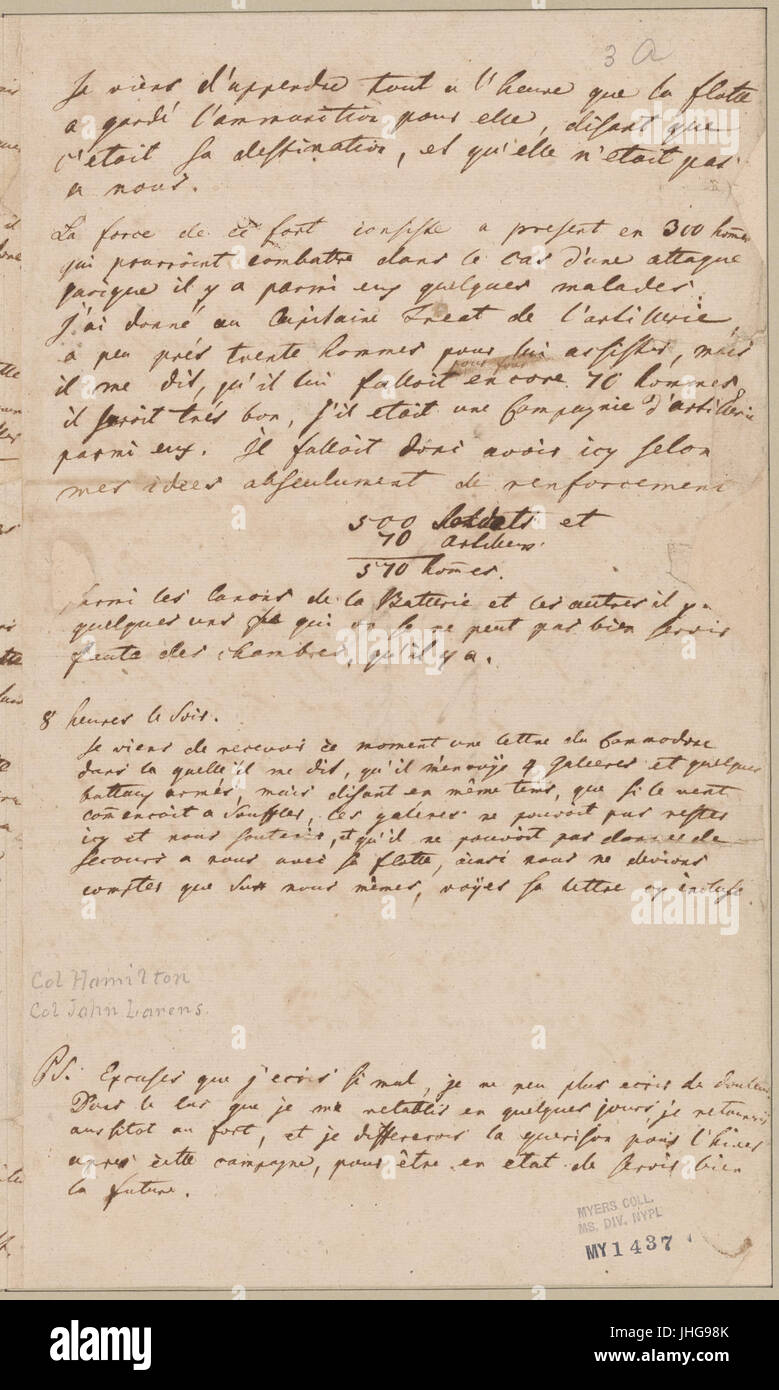 3 a
Je viens d'apprendre tout a l'heure que la flotte
a gardé l'ammunition pour elle, disant que
c'etait sa destination, et qu'elle n'etait pas
a nous.
La force de ce fort consiste a present en 300 hom̅es
qui pourroint combattre dans le cas d'une attaque
parcque il y a parmi eux quelques malades.
J'ai donné au Capitaine Treat de l'artillerie
a peu prés trente hommes pour lui assister, mais
il me dit, qu'il lui falloit encore 70 hommes,
il seroit trés bon, s'il etait une Compagnie d'artillerie
parmi eux. Il falloit donc avoir icy selon
mes idées absoulument de renforcement
500 Soldats et
70 artilleurs.
570 hom̅es.
parmi les canons de la Batterie et les autres il y a
quelques uns qui on se ne peut pas bien servir
faute des chambres, qu'il y a.
8 heures le Soir.
Je viens de recevoir ce moment une lettre du Commodore
dans la quelle il me dit, qu'il m'envoye 4 Galeeres et quelques
batteaux armés, mais disant en même tems, que si le vent
com̅encoit a souffler, ces galeres ne pouvoit pas rester
icy et nous soutenir, et qu'il ne pouvoit pas donner de
secours a nous avec sa flotte, ainsi nous ne devions
compter que sur nous mêmes, voÿes sa lettre cy incluse.
Col Hamilton
Col John Larens.
PS. Excuses que j'ecris si mal, je ne peu plus ecrir de douleur
Dans le cas que je me retablis en quelques jours je retournerois
aussitot au fort, et je differerois la guerison pour l'hiver
apres cette campagne, pour être en etat de servir bien
la future.
MYERS COLL.
MS. DIV. NYPL
MY 1437
alamy stock photo
JHG98K
www.alamy.com